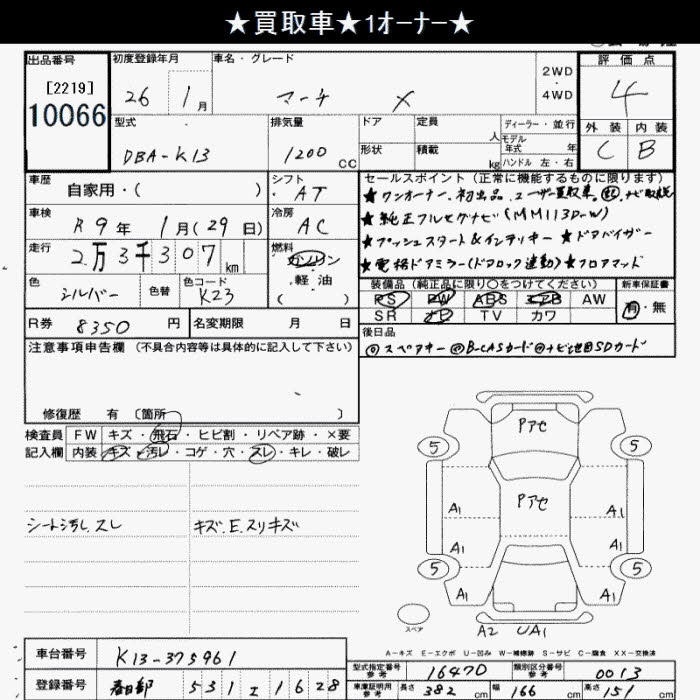 ★買取車★1ｵｰﾅｰ★
出品番号 初度登録年月 車名・グレード 2WD・4WD 評価点
[2219]
10066
26 1月 マーチ X 4
型式 排気量 ドア 定員 人 ディーラー・並行 外装 内装
DBA-K13 1200 CC 形状 積載 kg モデル年式 年 ハンドル 左・右 C B
車歴 自家用・( ) シフト AT
セールスポイント (正常に機能するものに限ります)
★ワンオーナー、初出品、ユーザー買取車、ナビ取説
車検 R9年 1月(29日) 冷房 AC
★純正フルセグナビ(MM113D-W)
走行 2万3千307km 燃料 ガソリン・軽油 ( )
★プッシュスタート&インテリキー ★ドアバイザー
★電格ドアミラー(ドアロック連動)★フロアマット
色 シルバー 色替 色コード K23
装備品 (純正品に限り○をつけてください) 新車保証書
PS PW ABS エアB AW 有・無
SR ナビ TV カワ
R券 8350円 名変期限 月 日
後日品
◎スペアキー ◎B-CASカード ◎ナビ地図SDカード
注意事項申告欄 (不具合内容等は具体的に記入して下さい)
修復歴 有 〔箇所 〕
検査員 FW キズ・飛石・ヒビ割・リペア跡・×要
記入欄 内装 キズ・汚レ・コゲ・穴・スレ・キレ・破レ
シート汚レ、スレ
キズ、E、スリキズ
Pアセ
5 5
Pアセ
A1 A1
A1 A1
5 5
A1 A1
スペア
A2 UA1
A-キズ E-エクボ U-凹み W-補修跡 S-サビ C-腐食 XX-交換済
車台番号 K13-375961
型式指定番号 参考 16470 類別区分番号 参考 0013
登録番号 春日部 531 エ 1628
車庫証明用 参考 長さ 382cm 幅 166cm 高さ 151cm